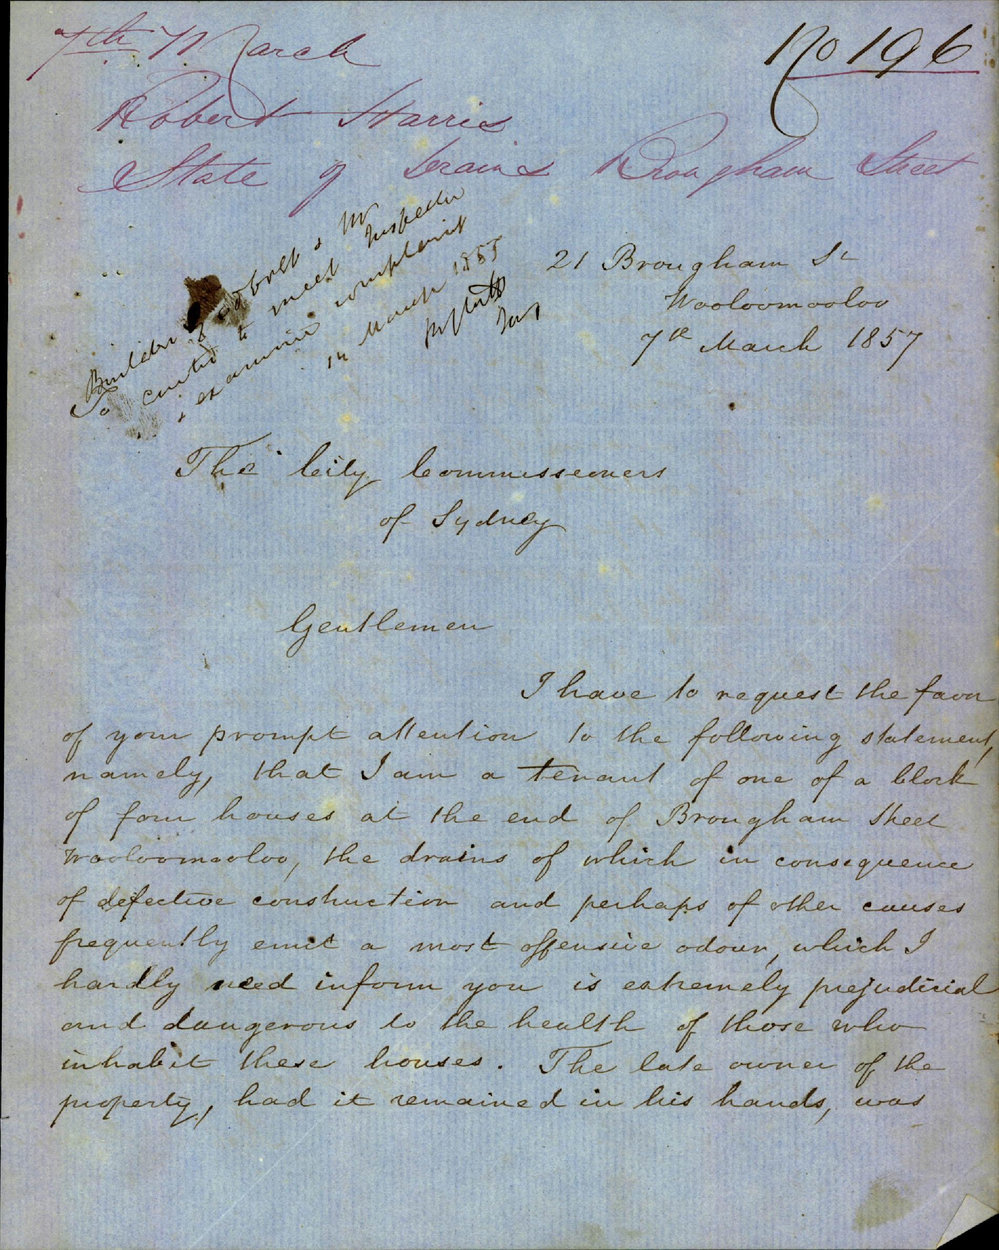 7th March
No 196
Robert Harris
State of Drains Brougham Street
Builder of
to meet Inspector
& examine complaint
March
21 Brougham St
Wooloomooloo
7th March 1857
The City Commissioners
of Sydney
Gentlemen
I have to request the favor
of your prompt attention to the following statement,
namely, that I am a tenant of one of a block
of four houses at the end of Brougham Street
Wooloomooloo, the drains of which in consequence
of defective construction and perhaps of other causes
frequently emit a most offensive odour, which I
hardly need inform you is extremely prejudicial
and dangerous to the health of those who
inhabit these houses. The late owner of the
property, had it remained in his hands, was